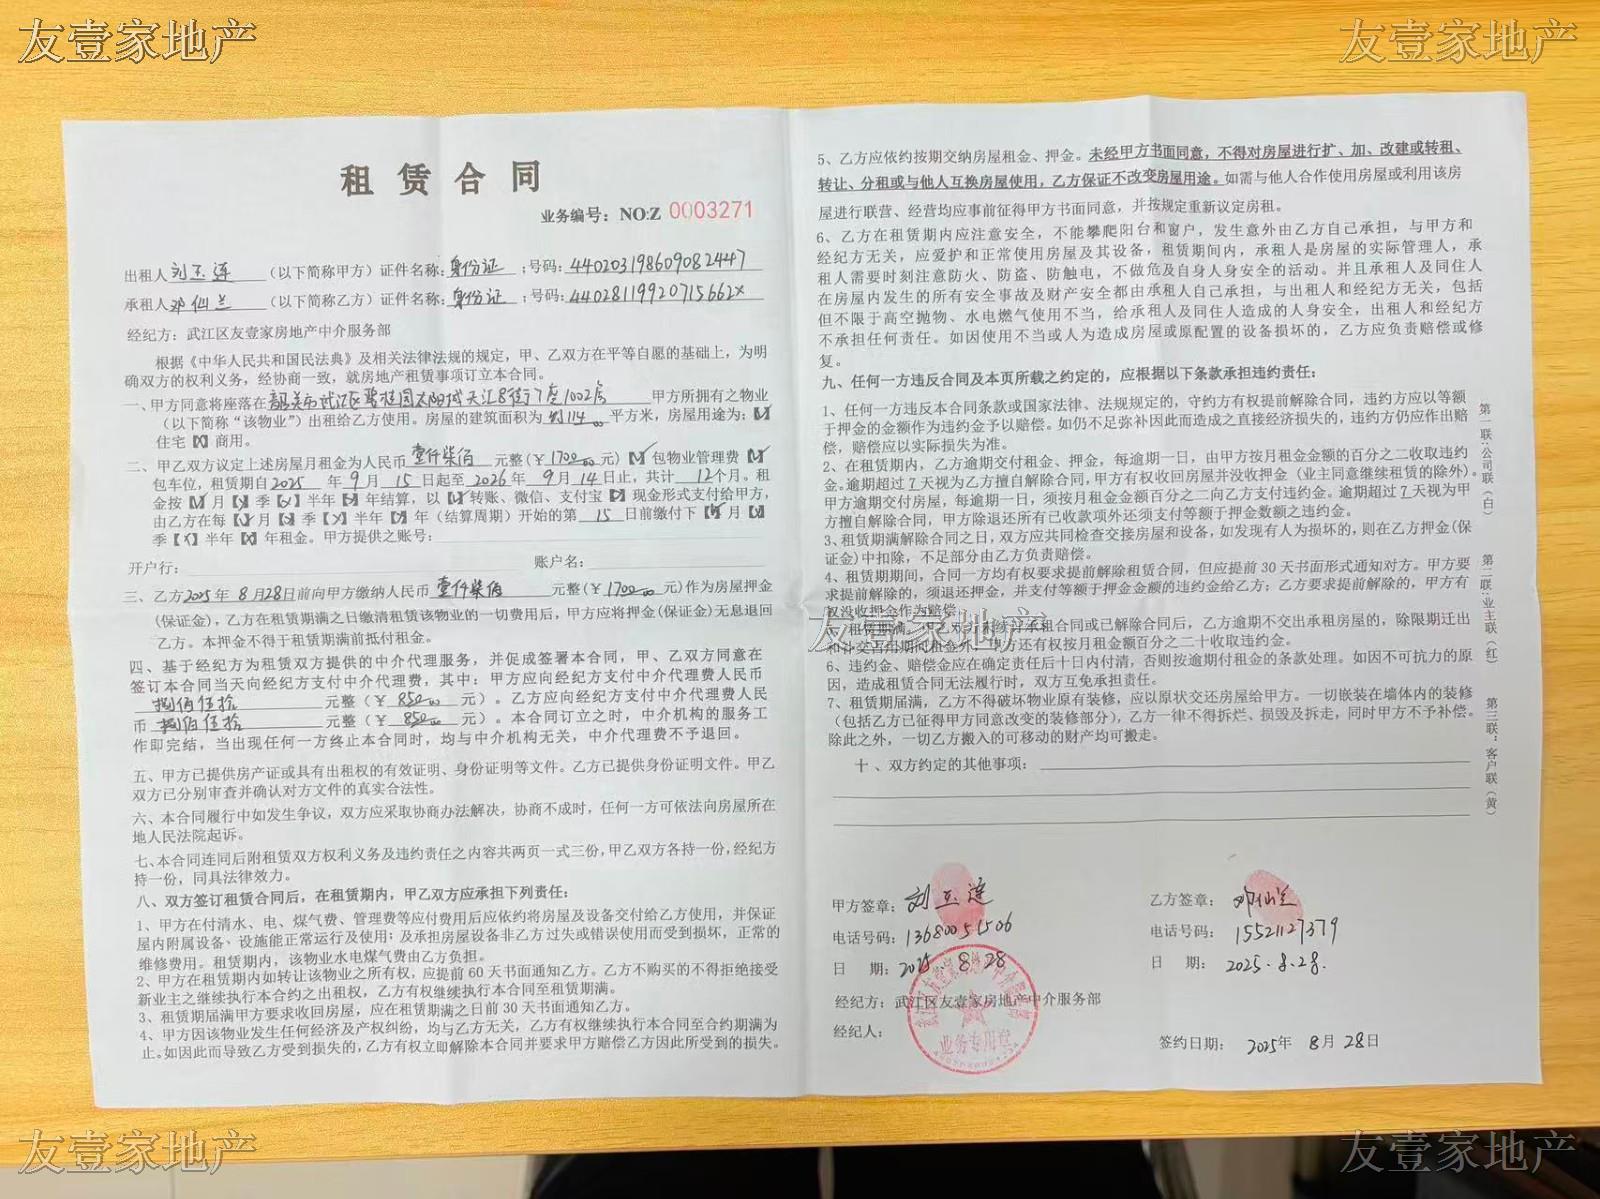 友壹家地产
友壹家地产
租 赁 合 同
业务编号：NO:Z 0003271
出租人 刘玉莲 （以下简称甲方）证件名称：身份证 ；号码：440203198609082447
承租人 邓仙兰 （以下简称乙方）证件名称：身份证 ；号码：44028119920715662X
经纪方：武江区友壹家房地产中介服务部
根据《中华人民共和国民法典》及相关法律法规的规定，甲、乙双方在平等自愿的基础上，为明
确双方的权利义务，经协商一致，就房地产租赁事项订立本合同。
一、甲方同意将座落在 韶关市武江区碧桂园太阳城天汇8街7座1002房 甲方所拥有之物业
（以下简称“该物业”）出租给乙方使用。房屋的建筑面积为 约114 平方米，房屋用途为：【✓】
住宅【X】商用。
二、甲乙双方议定上述房屋月租金为人民币 壹仟柒佰 元整(￥1700.00元)【✓】包物业管理费【✓】
包车位，租赁期自2025 年 9 月 15 日起至 2026 年 9 月 14 日止，共计 12 个月。租
金按【✓】月【X】季【X】半年【X】年结算，以【✓】转账、微信、支付宝【X】现金形式支付给甲方，
由乙方在每【✓】月【X】季【X】半年【X】年（结算周期）开始的第 15 日前缴付下【✓】月【X】
季【X】半年【X】年租金。甲方提供之账号：
开户行： 账户名：
三、乙方2025年 8月28日前向甲方缴纳人民币 壹仟柒佰 元整(￥1700.00 元)作为房屋押金
(保证金)，乙方在租赁期满之日缴清租赁该物业的一切费用后，甲方应将押金(保证金)无息退回
乙方。本押金不得于租赁期满前抵付租金。
四、基于经纪方为租赁双方提供的中介代理服务，并促成签署本合同，甲、乙双方同意在
签订本合同当天向经纪方支付中介代理费，其中：甲方应向经纪方支付中介代理费人民币
捌佰伍拾 元整（￥ 850.00 元）。乙方应向经纪方支付中介代理费人民
币 捌佰伍拾 元整（￥ 850.00 元）。本合同订立之时，中介机构的服务工
作即完结，当出现任何一方终止本合同时，均与中介机构无关，中介代理费不予退回。
五、甲方已提供房产证或具有出租权的有效证明、身份证明等文件。乙方已提供身份证明文件。甲乙
双方已分别审查并确认对方文件的真实合法性。
六、本合同履行中如发生争议，双方应采取协商办法解决，协商不成时，任何一方可依法向房屋所在
地人民法院起诉。
七、本合同连同后附租赁双方权利义务及违约责任之内容共两页一式三份，甲乙双方各持一份，经纪方
持一份，同具法律效力。
八、双方签订租赁合同后，在租赁期内，甲乙双方应承担下列责任：
1、甲方在付清水、电、煤气费、管理费等应付费用后应依约将房屋及设备交付给乙方使用，并保证
屋内附属设备、设施能正常运行及使用；及承担房屋设备非乙方过失或错误使用而受到损坏，正常的
维修费用。租赁期内，该物业水电煤气费由乙方负担。
2、甲方在租赁期内如转让该物业之所有权，应提前60天书面通知乙方。乙方不购买的不得拒绝接受
新业主之继续执行本合约之出租权，乙方有权继续执行本合同至租赁期满。
3、租赁期届满甲方要求收回房屋，应在租赁期满之日前30天书面通知乙方。
4、甲方因该物业发生任何经济及产权纠纷，均与乙方无关，乙方有权继续执行本合同至合约期满为
止。如因此而导致乙方受到损失的，乙方有权立即解除本合同并要求甲方赔偿乙方因此所受到的损失。
5、乙方应依约按期交纳房屋租金、押金。未经甲方书面同意，不得对房屋进行扩、加、改建或转租、
转让、分租或与他人互换房屋使用，乙方保证不改变房屋用途。如需与他人合作使用房屋或利用该房
屋进行联营、经营均应事前征得甲方书面同意，并按规定重新议定房租。
6、乙方在租赁期内应注意安全，不能攀爬阳台和窗户，发生意外由乙方自己承担，与甲方和
经纪方无关，应爱护和正常使用房屋及其设备，租赁期间内，承租人是房屋的实际管理人，承
租人需要时刻注意防火、防盗、防触电，不做危及自身人身安全的活动。并且承租人及同住人
在房屋内发生的所有安全事故及财产安全都由承租人自己承担，与出租人和经纪方无关，包括
但不限于高空抛物、水电燃气使用不当，给承租人及同住人造成的人身安全，出租人和经纪方
不承担任何责任。如因使用不当或人为造成房屋或原配置的设备损坏的，乙方应负责赔偿或修
复。
九、任何一方违反合同及本页所载之约定的，应根据以下条款承担违约责任：
1、任何一方违反本合同条款或国家法律、法规规定的，守约方有权提前解除合同，违约方应以等额
于押金的金额作为违约金予以赔偿。如仍不足弥补因此而造成之直接经济损失的，违约方仍应作出赔
偿，赔偿应以实际损失为准。
2、在租赁期内，乙方逾期交付租金、押金，每逾期一日，由甲方按月租金金额的百分之二收取违约
金。逾期超过7天视为乙方擅自解除合同，甲方有权收回房屋并没收押金（业主同意继续租赁的除外）。
甲方逾期交付房屋，每逾期一日，须按月租金金额百分之二向乙方支付违约金。逾期超过7天视为甲
方擅自解除合同，甲方除退还所有已收款项外还须支付等额于押金数额之违约金。
3、租赁期满解除合同之日，双方应共同检查交接房屋和设备，如发现有人为损坏的，则在乙方押金(保
证金)中扣除，不足部分由乙方负责赔偿。
4、租赁期期间，合同一方均有权要求提前解除租赁合同，但应提前30天书面形式通知对方。甲方要
求提前解除的，须退还押金，并支付等额于押金金额的违约金给乙方；乙方要求提前解除的，甲方有
权没收押金作为赔偿。
友壹家地产
租赁期满，甲乙双方未续订承租合同或已解除合同后，乙方逾期不交出承租房屋的，除限期迁出
和补交占用期间租金外，甲方还有权按月租金额百分之二十收取违约金。
6、违约金、赔偿金应在确定责任后十日内付清，否则按逾期付租金的条款处理。如因不可抗力的原
因，造成租赁合同无法履行时，双方互免承担责任。
7、租赁期届满，乙方不得破坏物业原有装修，应以原状交还房屋给甲方。一切嵌装在墙体内的装修
（包括乙方已征得甲方同意改变的装修部分），乙方一律不得拆烂、损毁及拆走，同时甲方不予补偿。
除此之外，一切乙方搬入的可移动的财产均可搬走。
十、双方约定的其他事项：
第一联:公司联（白）
第二联:业主联（红）
第三联：客户联（黄）
甲方签章：刘玉莲
电话号码：13680051506
日 期：2025.8.28
经纪方：武江区友壹家房地产中介服务部
经纪人：
业务专用章
乙方签章：邓仙兰
电话号码：15521127379
日 期：2025.8.28.
签约日期：2025年 8月 28日
友壹家地产
友壹家地产